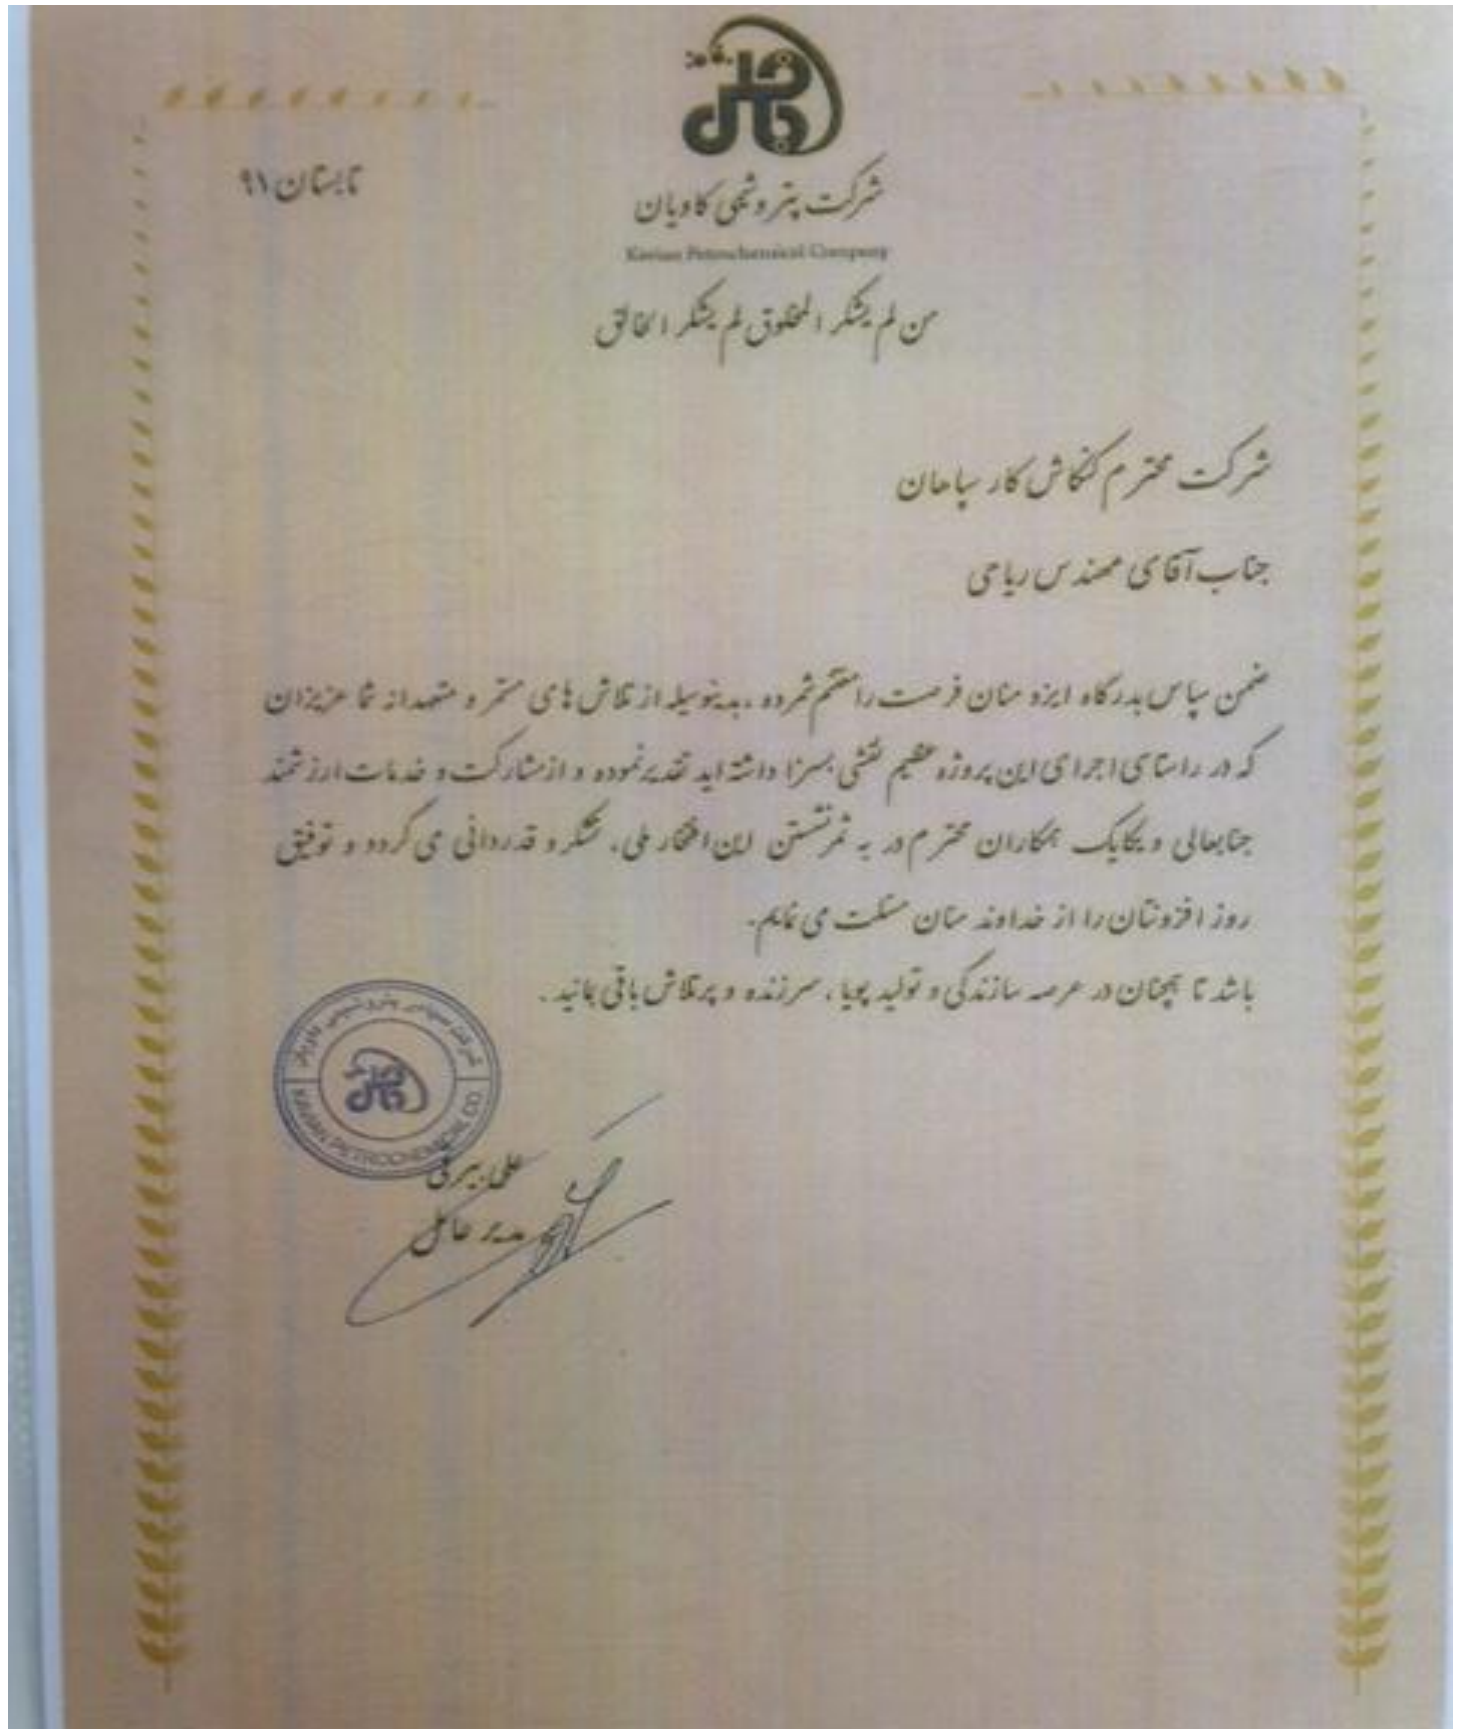 تابستان ۹۱
شرکت پتروشیمی کاویان
Kavian Petrochemical Company
من لم یشکر المخلوق لم یشکر الخالق
شرکت محترم کنکاش کار سپاهان
جناب آقای مهندس ریاحی
ضمن سپاس بدرگاه ایزد منان فرصت را مغتنم شمرده ، بدینوسیله از تلاش های مستمر و متعهدانه شما عزیزان
که در راستای اجرای این پروژه عظیم نقشی بسزا داشته اید تقدیر نموده و از مشارکت و خدمات ارزشمند
جنابعالی و یکایک همکاران محترم در به ثمر نشستن این افتخار ملی، تشکر و قدردانی می گردد و توفیق
روز افزونتان را از خداوند منان مسئلت می نمایم.
باشد تا همچنان در عرصه سازندگی و تولید پویا ، سرزنده و پرتلاش باقی بمانید .
KAVIAN PETROCHEMICAL CO.
علی
مدیر عامل